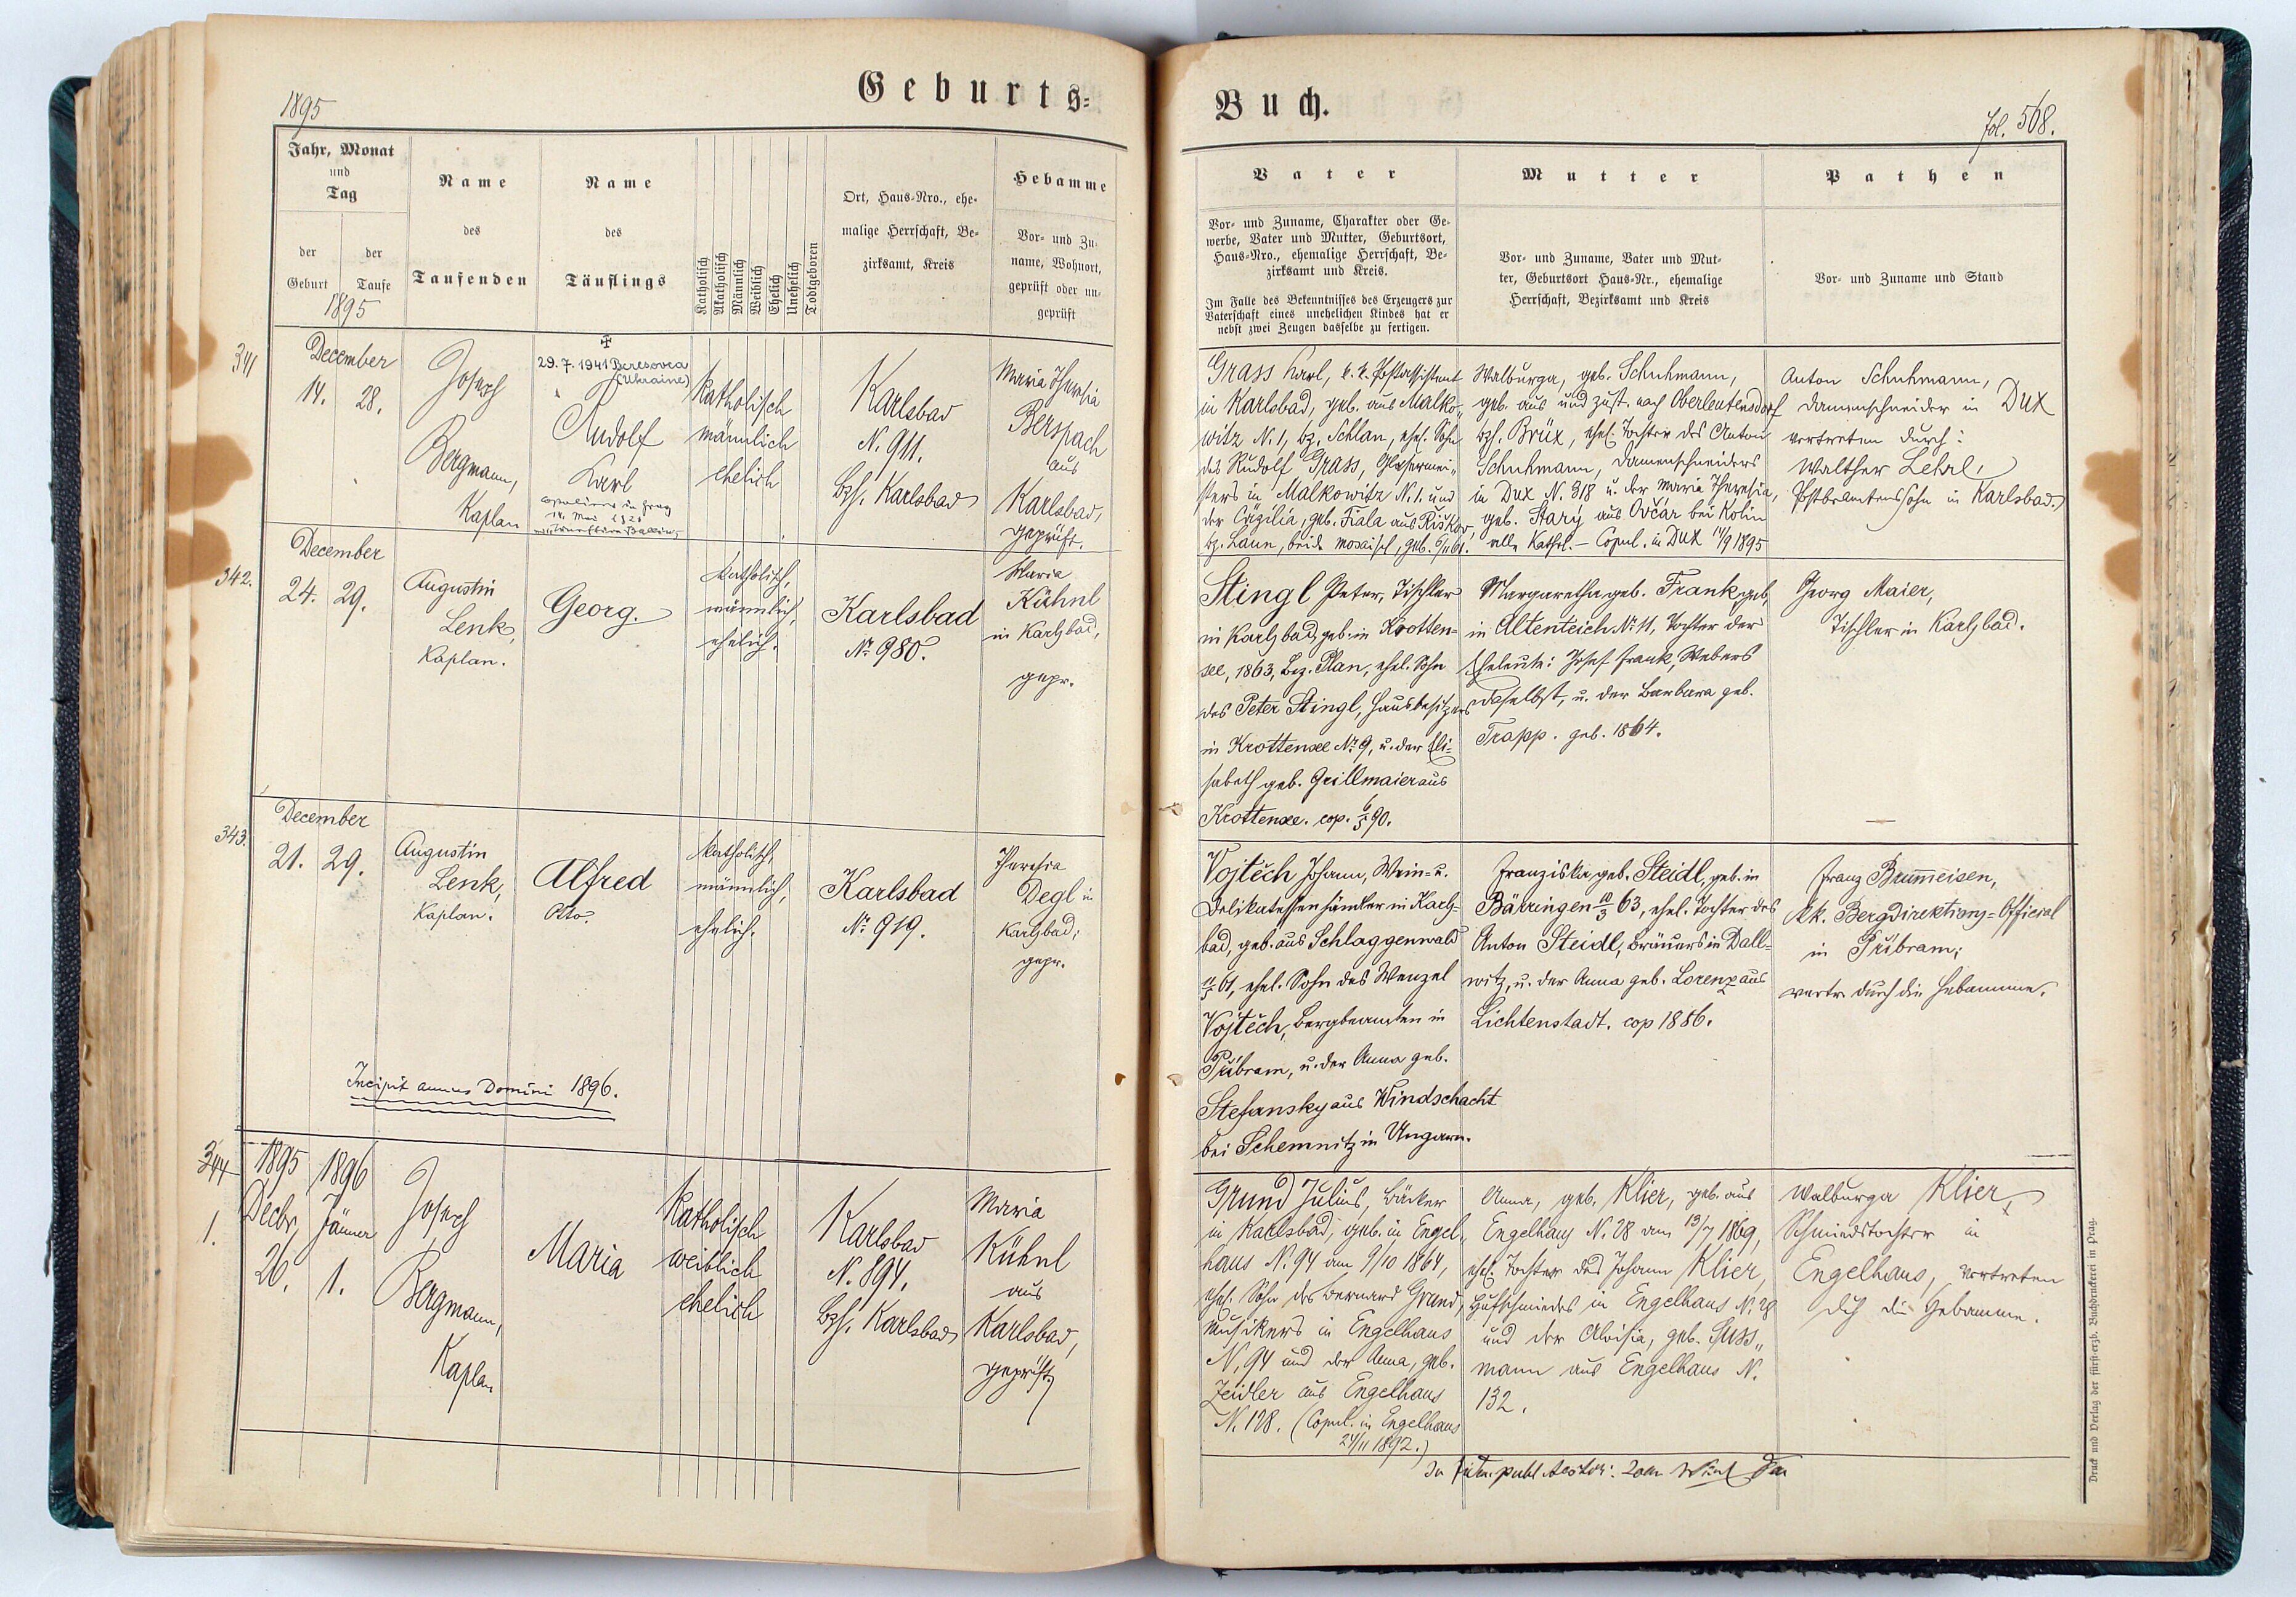 1895
Geburts-
Buch.
fol. 568.
Jahr, Monat
und
Tag
der
Geburt
der
Taufe
1895
Name
des
Taufenden
Name
des
Täuflings
Katholisch
Akatholisch
Männlich
Weiblich
Ehelich
Unehelich
Todtgeboren
Ort, Haus-Nro., ehe-
malige Herrschaft, Be-
zirksamt, Kreis
Hebamme
Vor- und Zu-
name, Wohnort,
geprüft oder un-
geprüft
Vater
Vor- und Zuname, Charakter oder Ge-
werbe, Vater und Mutter, Geburtsort,
Haus-Nro., ehemalige Herrschaft, Be-
zirksamt und Kreis.
Im Falle des Bekenntnisses des Erzeugers zur
Vaterschaft eines unehelichen Kindes hat er
nebst zwei Zeugen dasselbe zu fertigen.
Mutter
Vor- und Zuname, Vater und Mut-
ter, Geburtsort Haus-Nr., ehemalige
Herrschaft, Bezirksamt und Kreis
Pathen
Vor- und Zuname und Stand
341
December
14. 28.
Joseph
Bergmann,
Kaplan
29.7.1941 Beresovca
(Ukraine)
Rudolf
Karl
14. Mai
Katholisch
männlich
ehelich
Karlsbad
N. 911.
Bzh. Karlsbad
Maria Theresia
Berspach
aus
Karlsbad,
geprüft.
Grass Karl, k. k. Postassistent
in Karlsbad, geb. aus Malko„
witz N. 1, bz. Schlan, ehel. Sohn
des Rudolf Grass, Glasermei„
sters in Malkowitz N. 1. und
der Cäzilia, geb. Fiala aus
bz. Laun, beide mosaisch, geb. 6/11 61.
Walburga, geb. Schuhmann,
geb. aus und zust. nach Oberleutensdorf
bzh. Brüx, ehel. Tochter des Anton
Schuhmann, Damenschneiders
in Dux N. 318 u. der Maria Theresia,
geb. Starý aus Ovčár bei Kolin
alle Kathol. – Copul. in Dux 14/9 1895
Anton Schuhmann,
Damenschneider in Dux
vertreten durch:
Walther Lehrl,
Postbeamtenssohn in Karlsbad.
342.
December
24. 29.
Augustin
Lenk,
Kaplan.
Georg.
katholisch,
männlich,
ehelich.
Karlsbad
No 980.
Maria
Kühnl
in Karlsbad,
gepr.
Stingl Peter, Tischler
in Karlsbad, geb. in Krotten-
see, 1863, Bez. Plan, ehel. Sohn
des Peter Stingl, Hausbesitzers
in Krottensee No 9, u. der Eli-
sabeth geb. Grillmaier aus
Krottensee. cop. 6/5 90.
Margaretha geb. Frank, geb.
in Altenteich No 11, Tochter der
Eheleute: Josef Frank, Webers
daselbst, u. der Barbara geb.
Trapp. geb. 1864.
Georg Maier,
Tischler in Karlsbad.
343.
December
21. 29.
Augustin
Lenk,
Kaplan.
Alfred
Otto.
katholisch,
männlich,
ehelich.
Karlsbad
No 919.
Theresia
Degl in
Karlsbad;
gepr.
Vojtěch Johann, Wein- u.
Delikatessenhändler in Karls-
bad, geb. aus Schlaggenwald
61, ehel. Sohn des Wenzel
Vojtěch, Bergbeamten in
Přibram, u. der Anna geb.
Stefansky aus Windschacht
bei Schemnitz in Ungarn.
Franziska geb. Steidl, geb. in
Bärringen 10/3 63, ehel. Tochter des
Anton Steidl, Bräuers in Dall-
witz, u. der Anna geb. Lorenz aus
Lichtenstadt. cop 1886.
Franz Brum̄eisen,
k.k. Bergdirektions-Official
in Přibram;
vertr. durch die Hebamme.
Incipit annus Domini 1896.
344
1.
1895 1896
Decbr, Jänner
26. 1.
Joseph
Bergmann,
Kaplan
Maria
Katholisch
weiblich
ehelich
Karlsbad
N. 894.
Bzh. Karlsbad
Maria
Kühnl
aus
Karlsbad,
geprüft
Grund Julius, Bäcker
in Karlsbad, geb. in Engel„
haus N. 94 am 9/10 1864,
ehel. Sohn des Bernard Grund,
Musikers in Engelhaus
N. 94 und der Anna, geb.
Zeidler aus Engelhaus
N. 128. (Copul. in Engelhaus
24/11 1892.)
Anna, geb. Klier, geb. aus
Engelhaus N. 28 am 13/7 1869,
ehel. Tochter des Johann Klier,
Hufschmiedes in Engelhaus N. 28
und der Aloisia, geb. Suss„
mann aus Engelhaus N.
132.
Walburga Klier,
Schmiedstochter in
Engelhaus, vertreten
dch die Hebamme.
Druck und Verlag der fürst-erzb. Buchdruckerei in Prag.